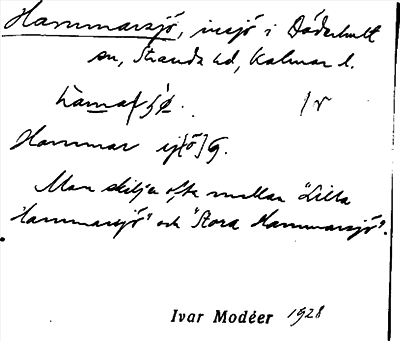 Hammarsjö, insjö i Döderhult
sn, Stranda hd, Kalmar l.
Hammar sj[ö] G.
Man skilja ofta mellan "Lilla
Hammarsjö" och "Stora Hammarsjö".
Ivar Modéer 1928